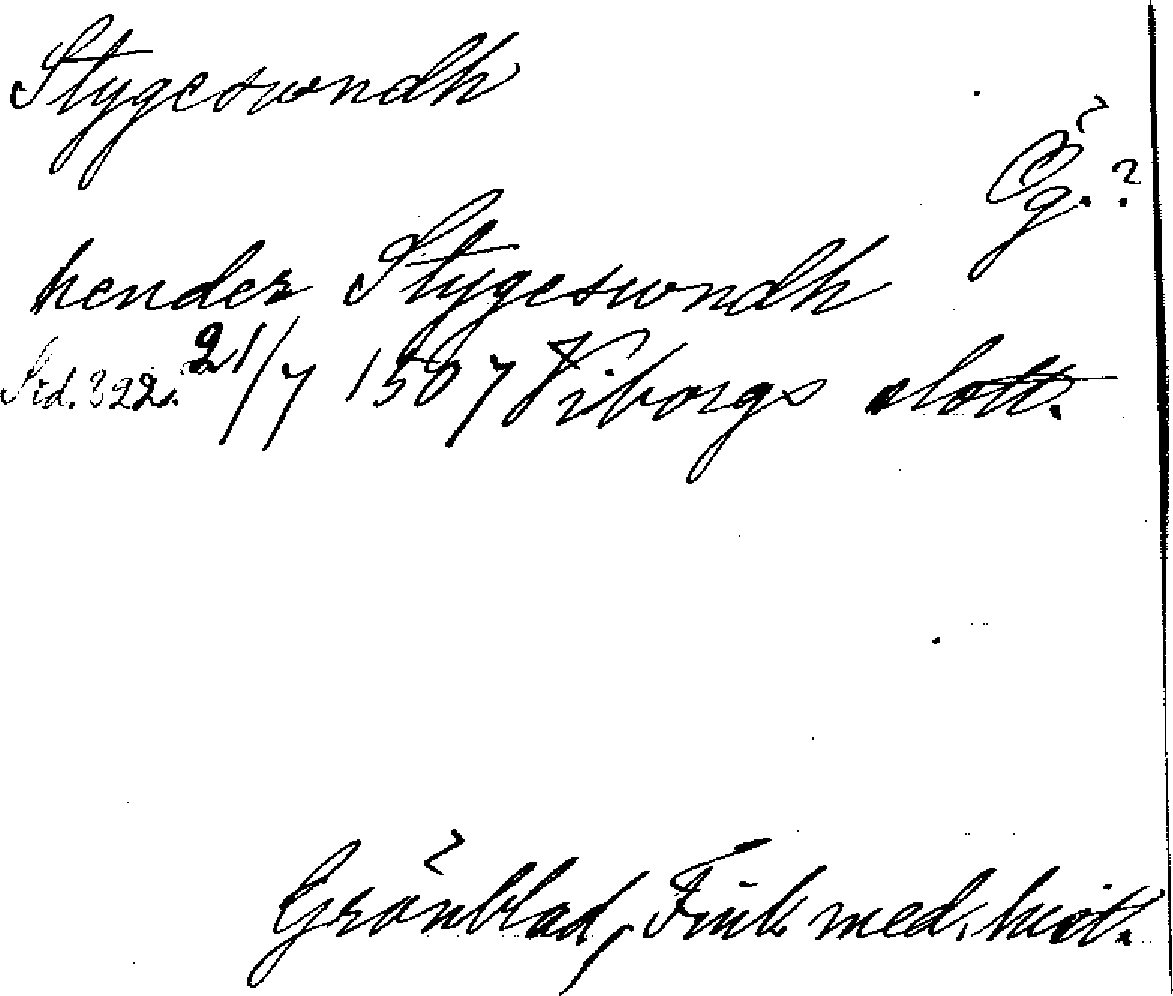 Stygeswndh
Ög. ?
hender Stygeswndh
Sid. 322. 21/7 1507 Viborgs slott.
Grönblad, Fink. med. hist.